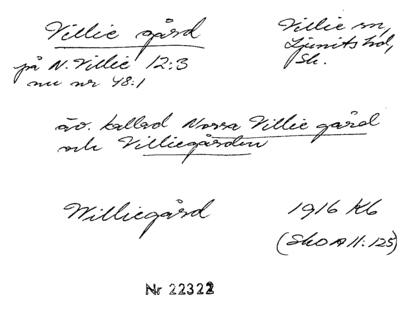 Villie gård
Villie sn,
Ljunits hd,
Sk.
på N. Villie 12:3
nu nr 48:1
äv. kallad Norra Villie gård
och Villiegården
Williegård
1916 Kb
(SkO A 11:125)
Nr 22322